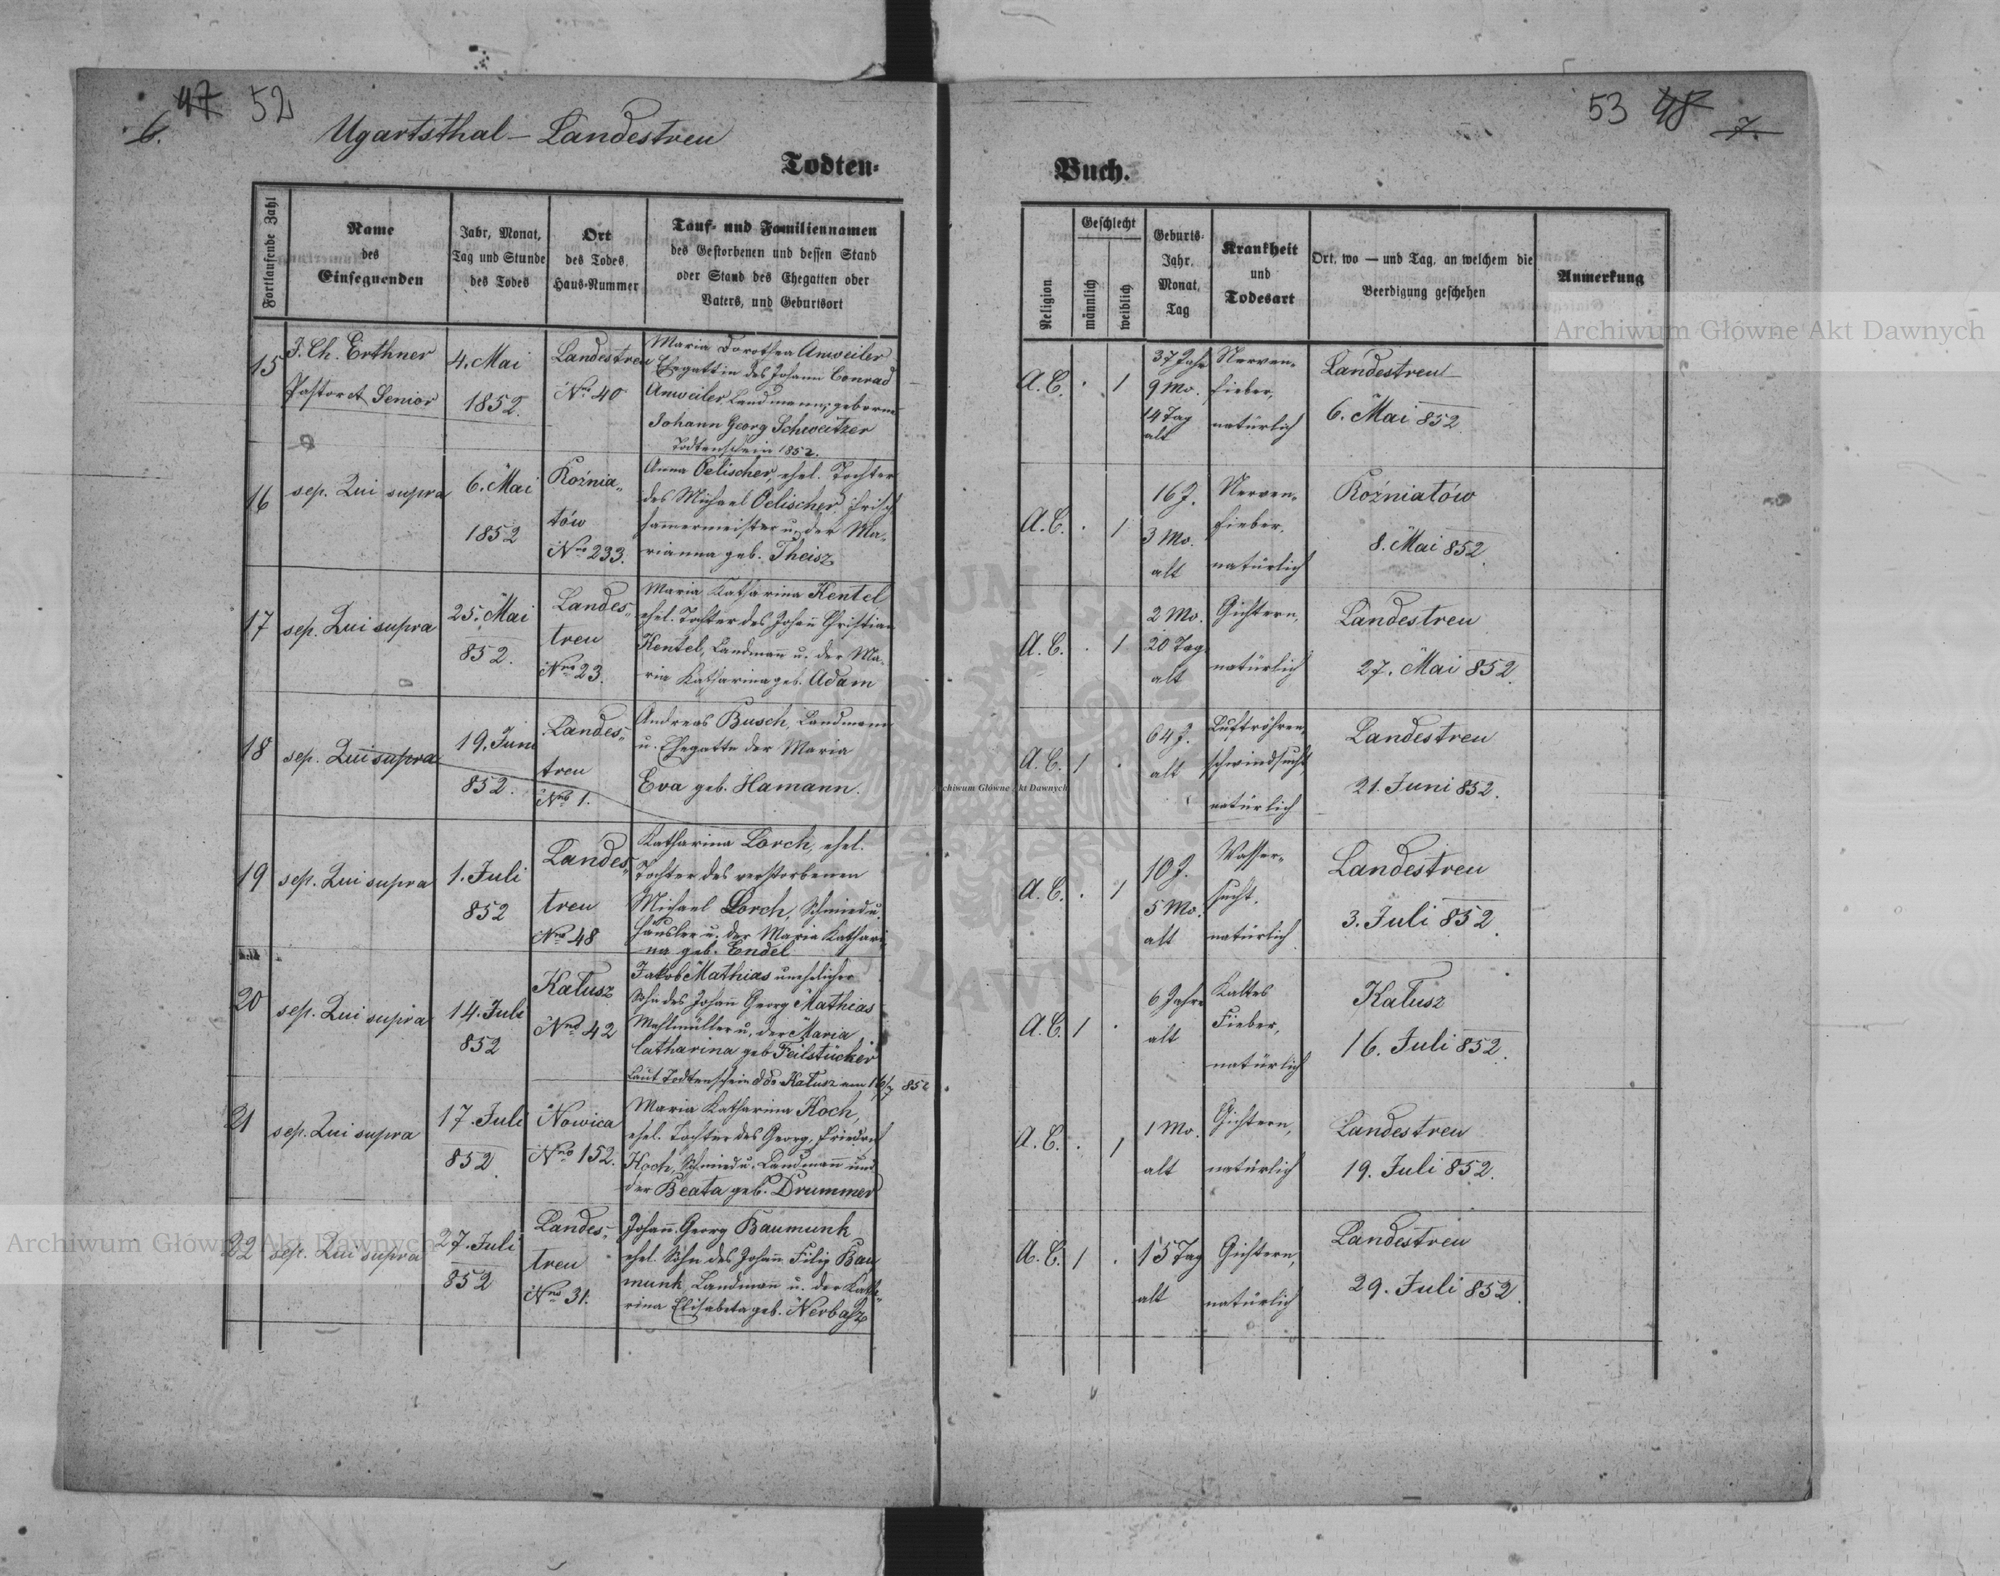 6. 47 52
Ugartsthal – Landestreu
Todten-
Fortlaufende Zahl
Name
des
Einsegnenden
Jahr, Monat,
Tag und Stunde
des Todes
Ort
des Todes,
Haus-Nummer
Tauf- und Familiennamen
des Gestorbenen und dessen Stand
oder Stand des Ehegatten oder
Vaters, und Geburtsort
15
J. Ch. Erthner
Pastor et Senior
4. Mai
1852.
Landestreu
Nro 40
Maria Dorothea Anweiler
Ehegattin des Johann Conrad
Anweiler, Landmann, geborne
Johann Georg Schweitzer
Todtenschein 1852.
16
sep. Qui supra
6. Mai
1852
Rożnia-
tów
Nro 233.
Anna Oelischer, ehel. Tochter
des Michael Oelischer, Frisch
hammermeister u. der Ma-
rianna geb. Theisz
17
sep. Qui supra
25. Mai
852.
Landes-
treu
Nro 23.
Maria Katharina Kentel
ehel. Tochter des Johann Christian
Kentel, Landmann u. der Ma-
ria Katharina geb. Adam
18
sep. Qui supra
19. Juni
852.
Landes-
treu
Nro 1.
Andreas Busch, Landmann
u. Ehegatte der Maria
Eva geb. Hamann.
19
sep. Qui supra
1. Juli
852
Landes-
treu
Nro 48
Katharina Lorch, ehel.
Tochter des verstorbenen
Michael Lorch, Schmied u.
Häusler u. der Maria Kathari
na geb. Endel
20
sep. Qui supra
14. Juli
852
Kałusz
Nro 42
Jakob Mathias unehelicher
Sohn des Johann Georg Mathias
Mahlmüller u. der Maria
Catharina geb Feilstücker
Laut Todtenschein ddo Kałusz am 16/7 852
21
sep. Qui supra
17. Juli
852.
Nowica
Nro 152.
Maria Katharina Koch,
ehel. Tochter des Georg Friedrich
Koch, Schmied u. Landmann und
der Beata geb. Drummer
22
sep. Qui supra
27. Juli
852
Landes-
treu
Nro 31.
Johann Georg Baumunk
ehel. Sohn des Johann Filip Bau
munk Landmann u. der Katha-
rina Elisabeta geb. Nerbasz
53 48 7.
Buch.
Religion
Geschlecht
männlich
weiblich
Geburts-
Jahr,
Monat,
Tag
Krankheit
und
Todesart
Ort, wo — und Tag, an welchem die
Beerdigung geschehen
Anmerkung
A. C. . 1
37 Jahr
9 Mo.
14 Tag
alt
Nerven-
fieber,
natürlich
Landestreu
6. Mai 852.
A. C. . 1
16 J.
3 Mo.
alt
Nerven-
fieber,
natürlich
Rożniatów
8. Mai 852.
A. C. . 1
2 Mo.
20 Tag
alt
Gichtern,
natürlich
Landestreu
27. Mai 852.
A. C. 1 .
64 J.
alt
Luftröhren-
schwindsucht,
natürlich
Landestreu
21. Juni 852.
A. C. . 1
10 J.
5 Mo.
alt
Wasser-
sucht.
natürlich
Landestreu
3. Juli 852.
A. C. 1 .
6 Jahre
alt
Kaltes
Fieber,
natürlich
Kałusz
16. Juli 852.
A. C. . 1
1 Mo.
alt
Gichtern,
natürlich
Landestreu
19. Juli 852.
A. C. 1 .
15 Tag
alt
Gichtern,
natürlich
Landestreu
29. Juli 852.
Archiwum Główne Akt Dawnych
Archiwum Główne Akt Dawnych
Archiwum Główne Akt Dawnych